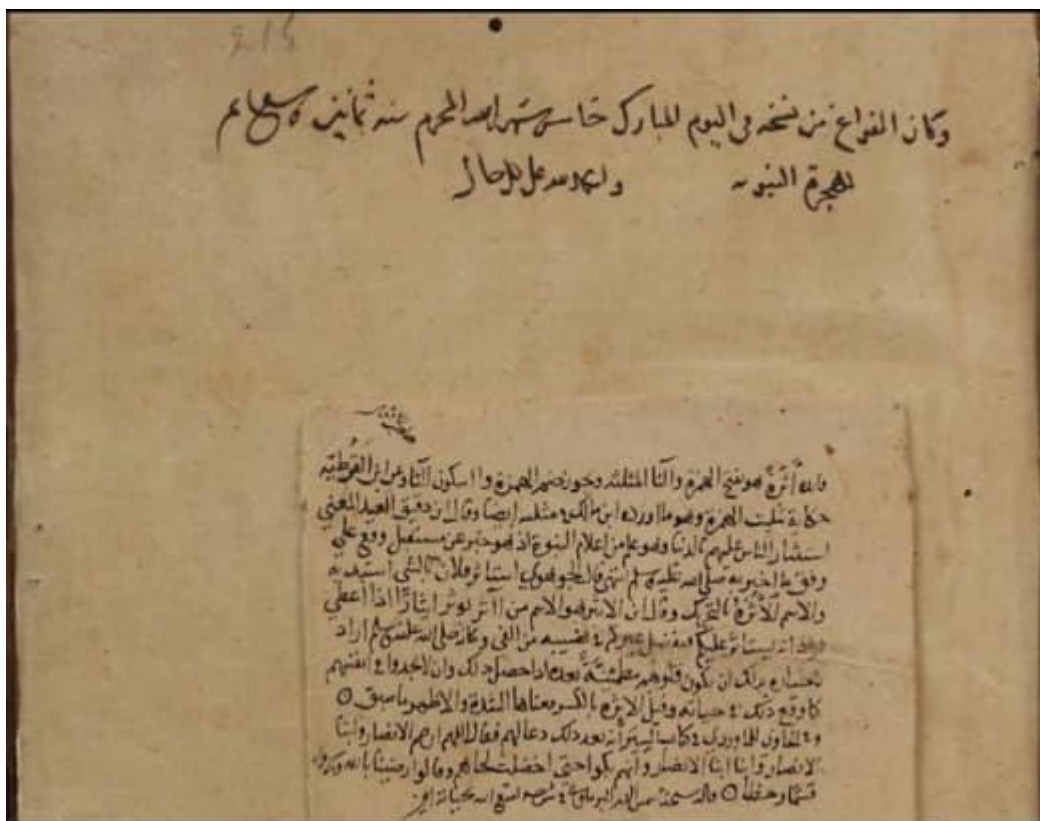 وكان الفراغ من نسخه في اليوم المبارك خامس شهر الله المحرم سنة ثمانين
للهجرة النبويه والحمد لله على كل حال
اثرة هو بفتح الهمزة والثا المثلثه ويجوز ضم الهمزة واسكون الثا وعن ابن القوطيه
حكاية تثليث الهمزة وهو ما اورده ابن مالك في مثلثه ايضا وقال ابن دقيق العيد المعني
استيثار الناس عليهم بالدنيا وهو علم من اعلام النبوة اذ هو خبر عن مستقبل وقع علي
وفق ما اخبر به صلي الله عليه وسلم انتهي قال الجوهري استاثر فلان بالشي استبد به
والاسم الاثرة بالتحريك وقال ابن الاثير هو الاسم من آثر يوثر ايثارا اذا اعطي
انه يستاثر عليكم فيفضل غيركم في نصيبه من الفي وكانه صلي الله عليه وسلم اراد
ان تكون قلوبهم مطمئنة بعده اذا حصل ذلك وان لا يجدوا في انفسهم
كما وقع ذلك في حياته وقيل الاثره بالكسر معناها الشدة والاظهر ما سبق
وفي الحاوي للماوردي في كتاب السير انه بعد ذلك دعا لهم فقال اللهم ارحم الانصار وابنا
الانصار وابنا ابنا الانصار وانهم بكوا حتى اخضلت لحاهم وقالوا رضينا بالله
قسما وحظا قاله في شرحه امتع الله بحياته